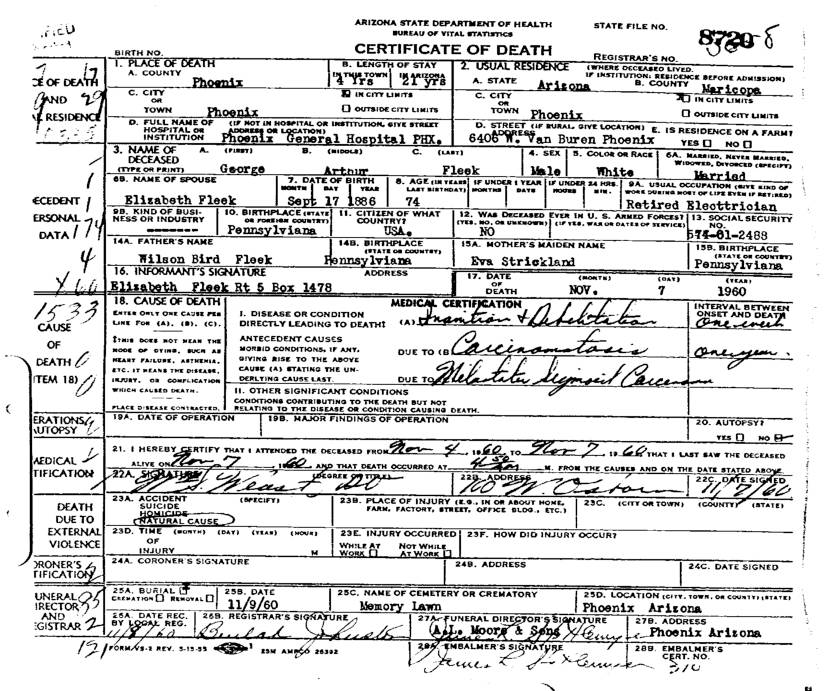 ARIZONA STATE DEPARTMENT OF HEALTH
BUREAU OF VITAL STATISTICS
STATE FILE NO.
CERTIFICATE OF DEATH
BIRTH NO.
REGISTRAR'S NO.
1. PLACE OF DEATH
A. COUNTY
Phoenix
B. LENGTH OF STAY
IN THIS TOWN 4 Yrs IN ARIZONA 21 yrs
2. USUAL RESIDENCE (WHERE DECEASED LIVED. IF INSTITUTION: RESIDENCE BEFORE ADMISSION)
A. STATE Arizona
B. COUNTY Maricopa
C. CITY OR TOWN Phoenix
IN CITY LIMITS
OUTSIDE CITY LIMITS
C. CITY OR TOWN Phoenix
IN CITY LIMITS
OUTSIDE CITY LIMITS
D. FULL NAME OF HOSPITAL OR INSTITUTION (IF NOT IN HOSPITAL OR INSTITUTION, GIVE STREET ADDRESS OR LOCATION)
Phoenix General Hospital PHX.
D. STREET ADDRESS (IF RURAL, GIVE LOCATION)
6406 W. Van Buren Phoenix
E. IS RESIDENCE ON A FARM?
YES NO
3. NAME OF DECEASED (TYPE OR PRINT)
A. (FIRST) B. (MIDDLE) C. (LAST)
George Arthur Fleek
4. SEX
Male
5. COLOR OR RACE
White
6A. MARRIED, NEVER MARRIED, WIDOWED, DIVORCED (SPECIFY)
Married
6B. NAME OF SPOUSE
Elizabeth Fleek
7. DATE OF BIRTH
MONTH DAY YEAR
Sept 17 1886
8. AGE (IN YEARS LAST BIRTHDAY)
74
IF UNDER 1 YEAR MONTHS DAYS
IF UNDER 24 HRS. HOURS MIN.
9A. USUAL OCCUPATION (GIVE KIND OF WORK DURING MOST OF LIFE EVEN IF RETIRED)
Retired Electtrician
9B. KIND OF BUSINESS OR INDUSTRY
--------
10. BIRTHPLACE (STATE OR FOREIGN COUNTRY)
Pennsylviana
11. CITIZEN OF WHAT COUNTRY?
USA.
12. WAS DECEASED EVER IN U. S. ARMED FORCES?
(YES, NO, OR UNKNOWN) (IF YES, WAR OR DATES OF SERVICE)
NO
13. SOCIAL SECURITY NO.
574-01-2468
14A. FATHER'S NAME
Wilson Bird Fleek
14B. BIRTHPLACE (STATE OR COUNTRY)
Pennsylviana
15A. MOTHER'S MAIDEN NAME
Eva Strickland
15B. BIRTHPLACE (STATE OR COUNTRY)
Pennsylviana
16. INFORMANT'S SIGNATURE ADDRESS
Elizabeth Fleek Rt 5 Box 1478
17. DATE OF DEATH (MONTH) (DAY) (YEAR)
NOV. 7 1960
18. CAUSE OF DEATH
ENTER ONLY ONE CAUSE PER LINE FOR (A), (B), (C).
MEDICAL CERTIFICATION
INTERVAL BETWEEN ONSET AND DEATH
I. DISEASE OR CONDITION DIRECTLY LEADING TO DEATH‡ (A) Inanition & Debilitation
One week
‡THIS DOES NOT MEAN THE MODE OF DYING, SUCH AS HEART FAILURE, ASTHENIA, ETC. IT MEANS THE DISEASE, INJURY, OR COMPLICATION WHICH CAUSED DEATH.
ANTECEDENT CAUSES
MORBID CONDITIONS, IF ANY, GIVING RISE TO THE ABOVE CAUSE (A) STATING THE UNDERLYING CAUSE LAST.
DUE TO (B) Carcinomatosis
one year.
DUE TO
II. OTHER SIGNIFICANT CONDITIONS
CONDITIONS CONTRIBUTING TO THE DEATH BUT NOT RELATING TO THE DISEASE OR CONDITION CAUSING DEATH.
PLACE DISEASE CONTRACTED.
19A. DATE OF OPERATION
19B. MAJOR FINDINGS OF OPERATION
20. AUTOPSY?
YES NO
21. I HEREBY CERTIFY THAT I ATTENDED THE DECEASED FROM Nov 4, 1960, TO Nov 7, 1960 THAT I LAST SAW THE DECEASED
ALIVE ON Nov 7 1960, AND THAT DEATH OCCURRED AT M. FROM THE CAUSES AND ON THE DATE STATED ABOVE.
22A. SIGNATURE (DEGREE OR TITLE)
22B. ADDRESS
22C. DATE SIGNED
11/7/60
23A. ACCIDENT (SPECIFY)
SUICIDE
HOMICIDE
NATURAL CAUSE
23B. PLACE OF INJURY (E.G., IN OR ABOUT HOME, FARM, FACTORY, STREET, OFFICE BLDG., ETC.)
23C. (CITY OR TOWN) (COUNTY) (STATE)
23D. TIME OF INJURY (MONTH) (DAY) (YEAR) (HOUR)
M
23E. INJURY OCCURRED
WHILE AT WORK NOT WHILE AT WORK
23F. HOW DID INJURY OCCUR?
24A. CORONER'S SIGNATURE
24B. ADDRESS
24C. DATE SIGNED
25A. BURIAL
CREMATION REMOVAL
25B. DATE
11/9/60
25C. NAME OF CEMETERY OR CREMATORY
Memory Lawn
25D. LOCATION (CITY, TOWN, OR COUNTY) (STATE)
Phoenix Arizona
26A. DATE REC. BY LOCAL REG.
11/8/60
26B. REGISTRAR'S SIGNATURE
Beulah Johnston
27A. FUNERAL DIRECTOR'S SIGNATURE
A.L. Moore & Sons
27B. ADDRESS
Phoenix Arizona
28A. EMBALMER'S SIGNATURE
28B. EMBALMER'S CERT. NO.
310
FORM VS-2 REV. 5-15-55
25M AMPCO 26392
CE OF DEATH
AND
RESIDENCE
ECEDENT
ERSONAL
DATA
174
4
1533
CAUSE
OF
DEATH
ITEM 18)
ERATIONS,
AUTOPSY
MEDICAL
TIFICATION
DEATH
DUE TO
EXTERNAL
VIOLENCE
ORONER'S
TIFICATION
UNERAL
IRECTOR
AND
GISTRAR